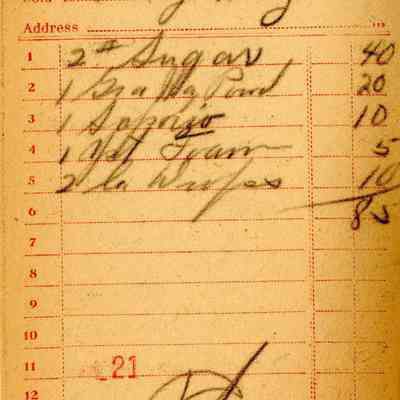 Address
1 2# Sugar 40
2 1 Powd 20
3 1 Sapolio 10
4 1 Yst Foam 5
5 2 10
6 85
7
8
9
10
11 21
12